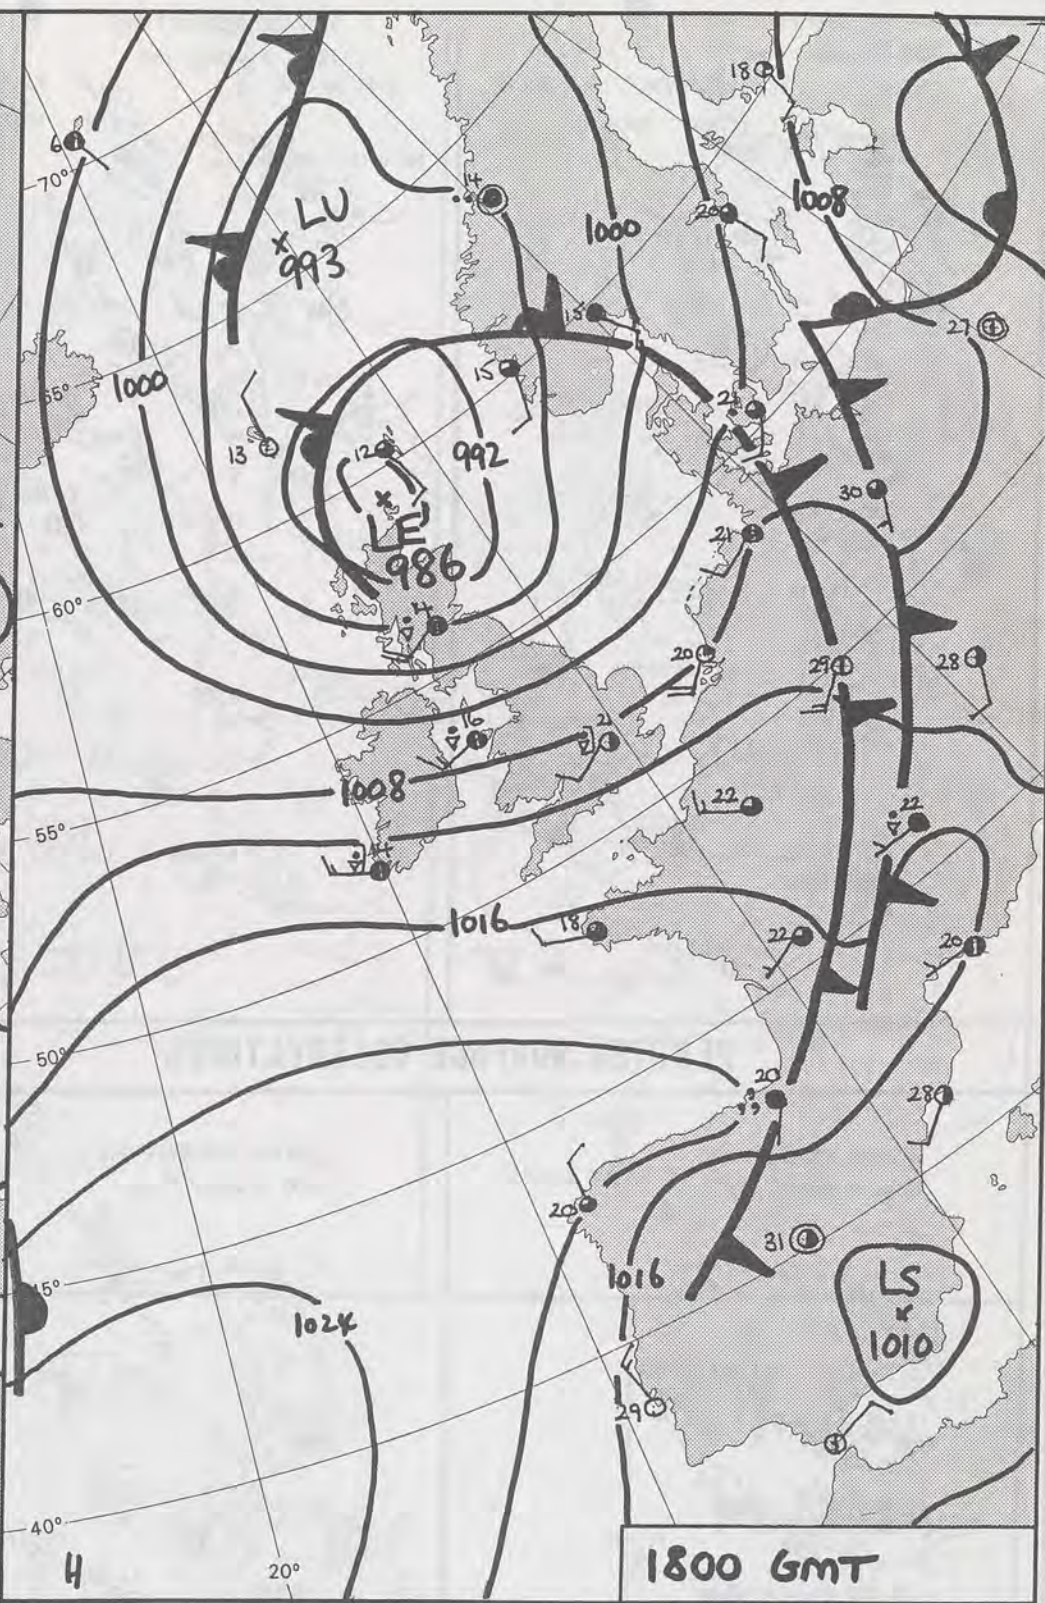 18
6
70°
14
LU
993
1000
20
1008
15
27
65°
1000
15
21
13
12
992
30
LE
986
21
60°
14
20
29
28
16
21
1008
55°
22
22
14
1016
18
22
20
50°
20
28
20
31
1016
LS
1010
45°
1024
29
40°
H
20°
1800 GMT